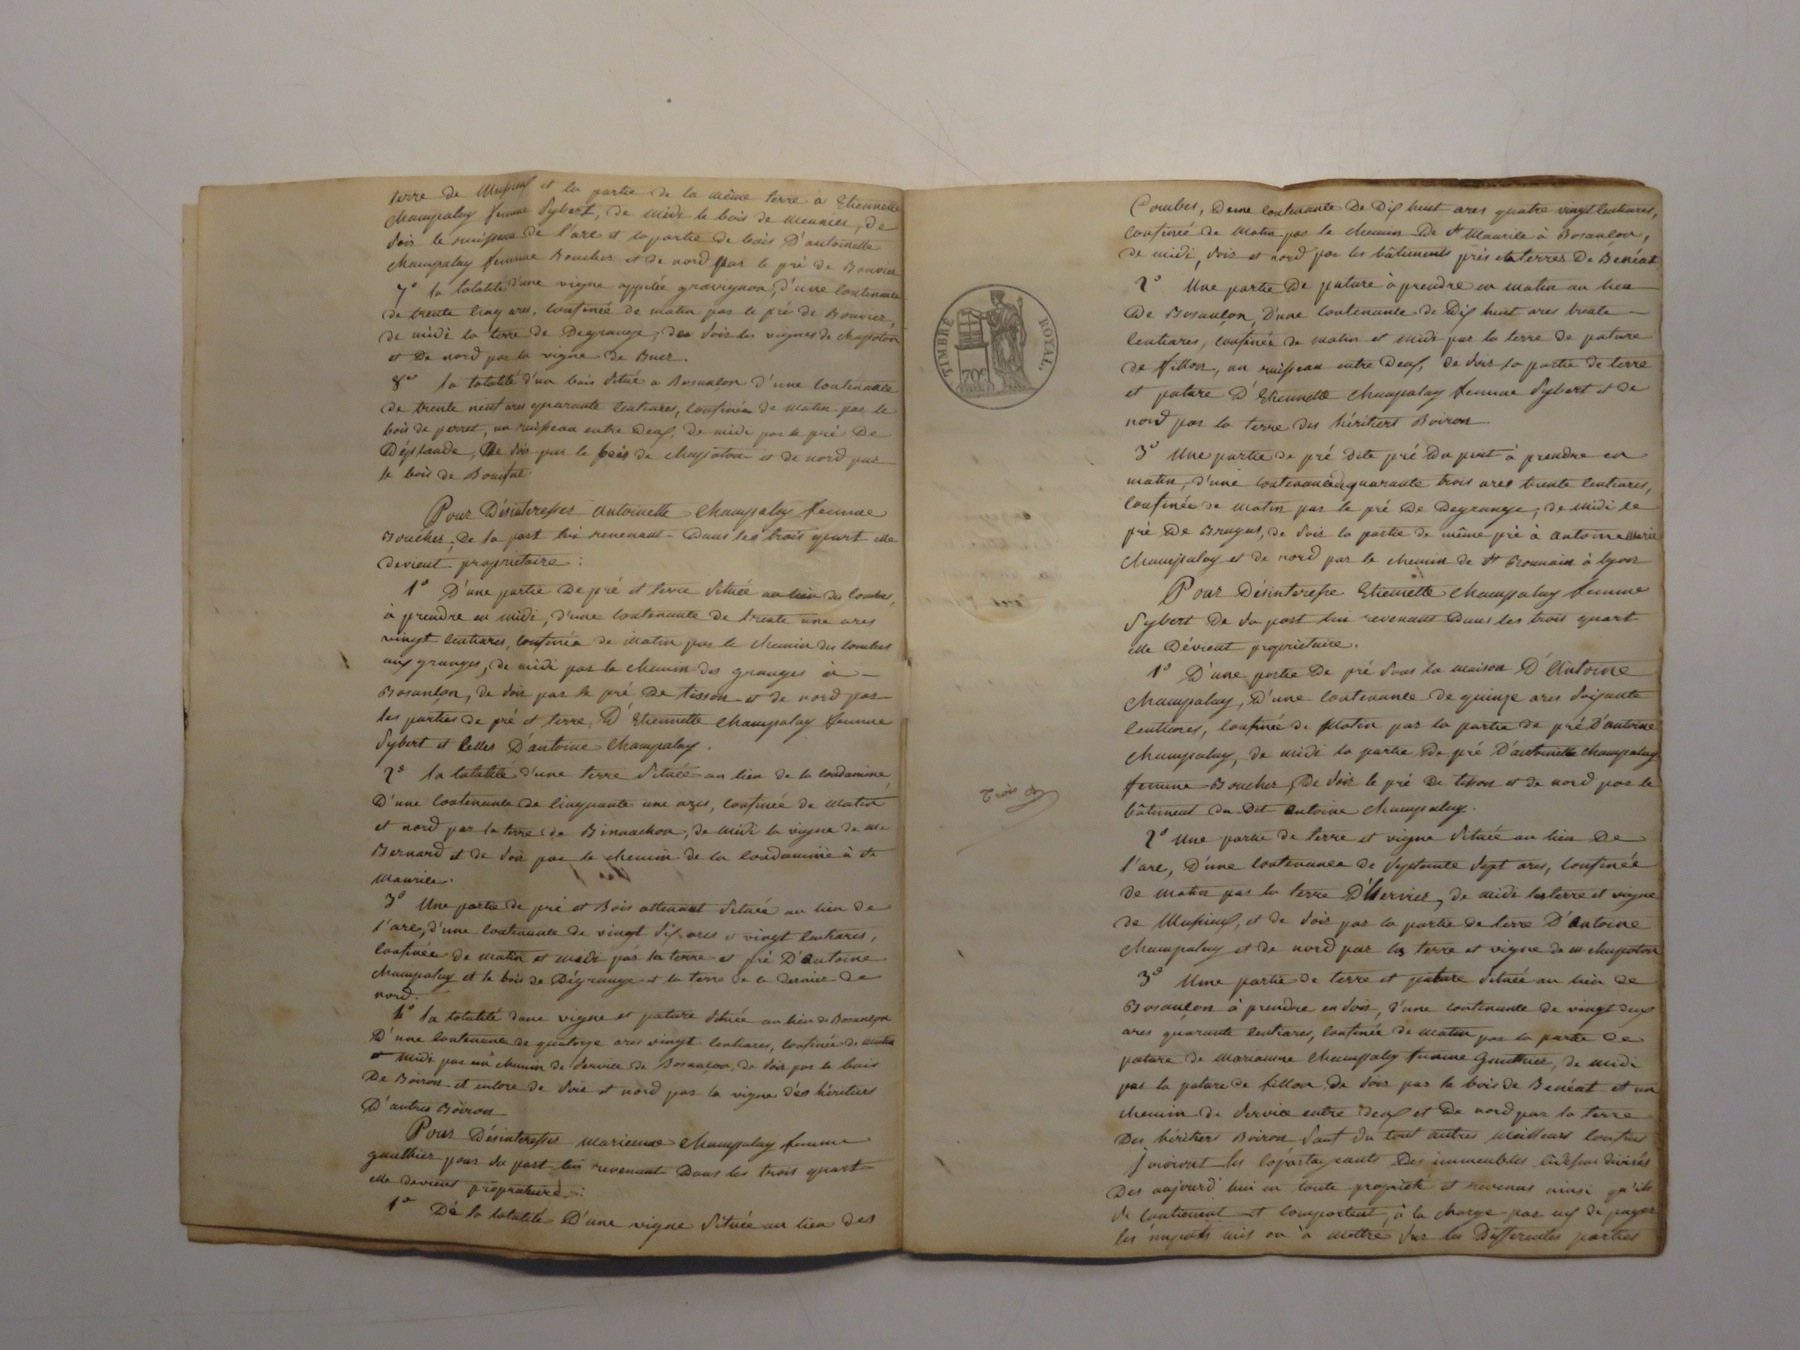 terre de Mussieux et la partie de la même terre à Etiennette
Champalay femme Sybert, de midi le bois de Meunier, de
soir le ruisseau de l'arc et la partie de bois D'antoinette
Champalay femme Boucher et de nord par le pré de Bouvier
7° la totalité d'une vigne appellée gravignon, d'une contenance
de trente cinq ares, confinée de matin par le pré de Bouvier,
de midi la terre de Degrange, de soir les vignes de chapoton
et De nord par la vigne de Buer.
8° la totalité d'un bois située a Bosançon d'une contenance
de trente neuf ares quarante centiares, confinée de matin par le
bois de perret, un ruisseau entre deux, de midi par le pré De
De soir par le bois de chapoton et de nord par
le bois de
Pour Désinteresser antoinette Champalay femme
Boucher, De sa part lui revenant Dans les trois quart elle
devient propriétaire :
1° D'une partie De pré et terre située au lieu des combes,
à prendre en midi, d'une contenante de trente une ares
vingt centiares, confinée de matin par le chemin des combes
aux granges, de midi par le chemin des granges à
Bosançon, de soir par le pré De tisson et de nord par
les parties de pré et terre, D'Etiennette Champalay femme
Sybert et Celles D'antoine Champalay.
2° la totalité d'une terre située au lieu de la condamine
D'une contenante de Cinquante une ares, confinée de matin
et nord par la terre de Binachon, de midi la vigne de
Bernard et de soir par le chemin de la condamine à st
Maurice.
3° Une partie de pré et Bois attenant située au lieu de
l'arc, d'une contenante de vingt six ares vingt centiares,
confinée de matin et midi par la terre et pré D'antoine
Champalay et le bois de Dégrange et la terre de ce dernier de
nord.
4° la totalité dune vigne et pature située au lieu de Bosançon
D'une contenance de quatorze ares vingt centiares, confinée de matin
et midi par un chemin de service de Bosançon, de soir par le bois
De Boiron et encore de soir et nord par la vigne des héritiers
D'autres Boiron
Pour Désinteresser marianne Champalay femme
gauthier pour sa part lui revenant Dans les trois quart
elle devient propriétaire :
1° De la totalité D'une vigne située au lieu des
TIMBRE ROYAL
70c
Trois
Combes, D'une contenante De Dix huit ares quatre vingt centiares,
confinée de matin par le chemin De st Maurice à Bosançon,
de midi, soir et nord par les bâtiments près et terres De Benéat
2° Une partie De pature à prendre en matin au lieu
De Bosançon, D'une contenante de Dix huit ares trente
centiares, confinée de matin et midi par la terre de pature
de fillon, un ruisseau entre deux, de soir la partie de terre
et pature D'Etiennette Champalay femme Sybert et de
nord par la terre des héritiers Boiron
3° Une partie de pré dite pré du puit à prendre en
matin, d'une contenance quarante trois ares trente centiares,
confinée de matin par le pré De Degrange, de midi le
pré De Bruyas, de soir la partie de même pré à antoine Marie
Champalay et de nord par le chemin de st Romain à lyon
Pour Désinteresser Etiennette Champalay femme
Sybert De sa part lui revenant Dans les trois quart
elle Devient propriétaire.
1° D'une partie De pré sous la maison D'Antoine
Champalay, D'une contenance de quinze ares soixante
centiares, confinée de matin par la partie de pré D'antoine
Champalay, de midi la partie de pré D'antoinette Champalay
femme Boucher, De soir le pré de tisson et de nord par le
bâtiment du Dit antoine Champalay.
2° Une partie de terre et vigne située au lieu De
l'arc, D'une contenance de septante sept ares, confinée
de matin par la terre D'hervier, de midi la terre et vigne
de Mussieux, et de soir par la partie de terre D'antoine
Champalay et de nord par la terre et vigne de m chapoton
3° Une partie de terre et pature située au lieu de
Bosançon à prendre en soir, d'une contenante de vingt deux
ares quarante centiares, confinée de matin par la partie de
pature de marianne Champalay femme Gauthier, de midi
par la pature de fillon, de soir par le bois de Benéat et un
chemin de service entre deux et De nord par la terre
Des héritiers Boiron sauf du tout autres meilleurs confins
Jouiront les copartageants Des immeubles cidessus divisés
Des aujourd'hui en toute propriété et revenus ainsi qu'ils
se contiennent et comportent, à la charge par eux de payer
les impôts mis ou à mettre sur les Differentes parties